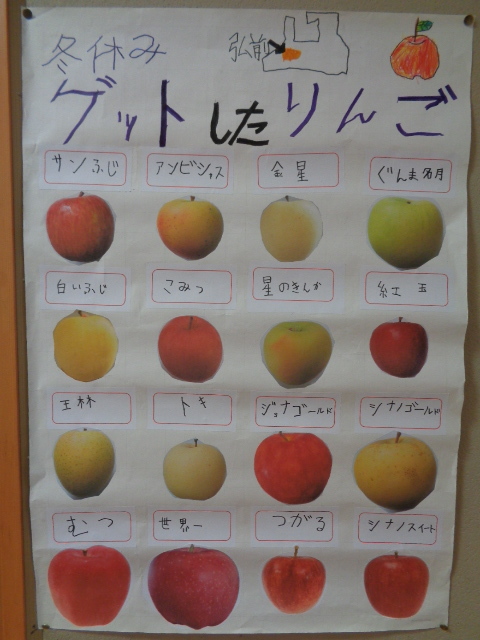 冬休み
弘前
ゲットしたりんご
サンふじ
アンビシャス
金星
ぐんま名月
白いふじ
こみつ
星のきんか
紅玉
王林
トキ
ジョナゴールド
シナノゴールド
むつ
世界一
つがる
シナノスイート